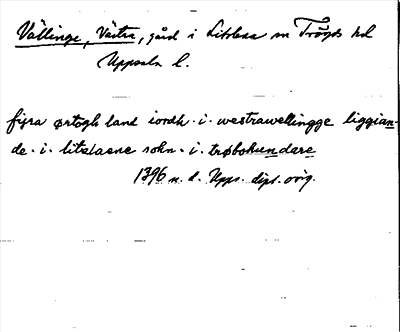 Vällinge, Västra, gård i Litslena sn Trögds hd
Uppsala l.
fijra ørtogh land iordh. i. westrawellingge liggian-
de. i. litzlaene sokn. i. trøbohundare
1396 u. d. Upps. dipl. orig.